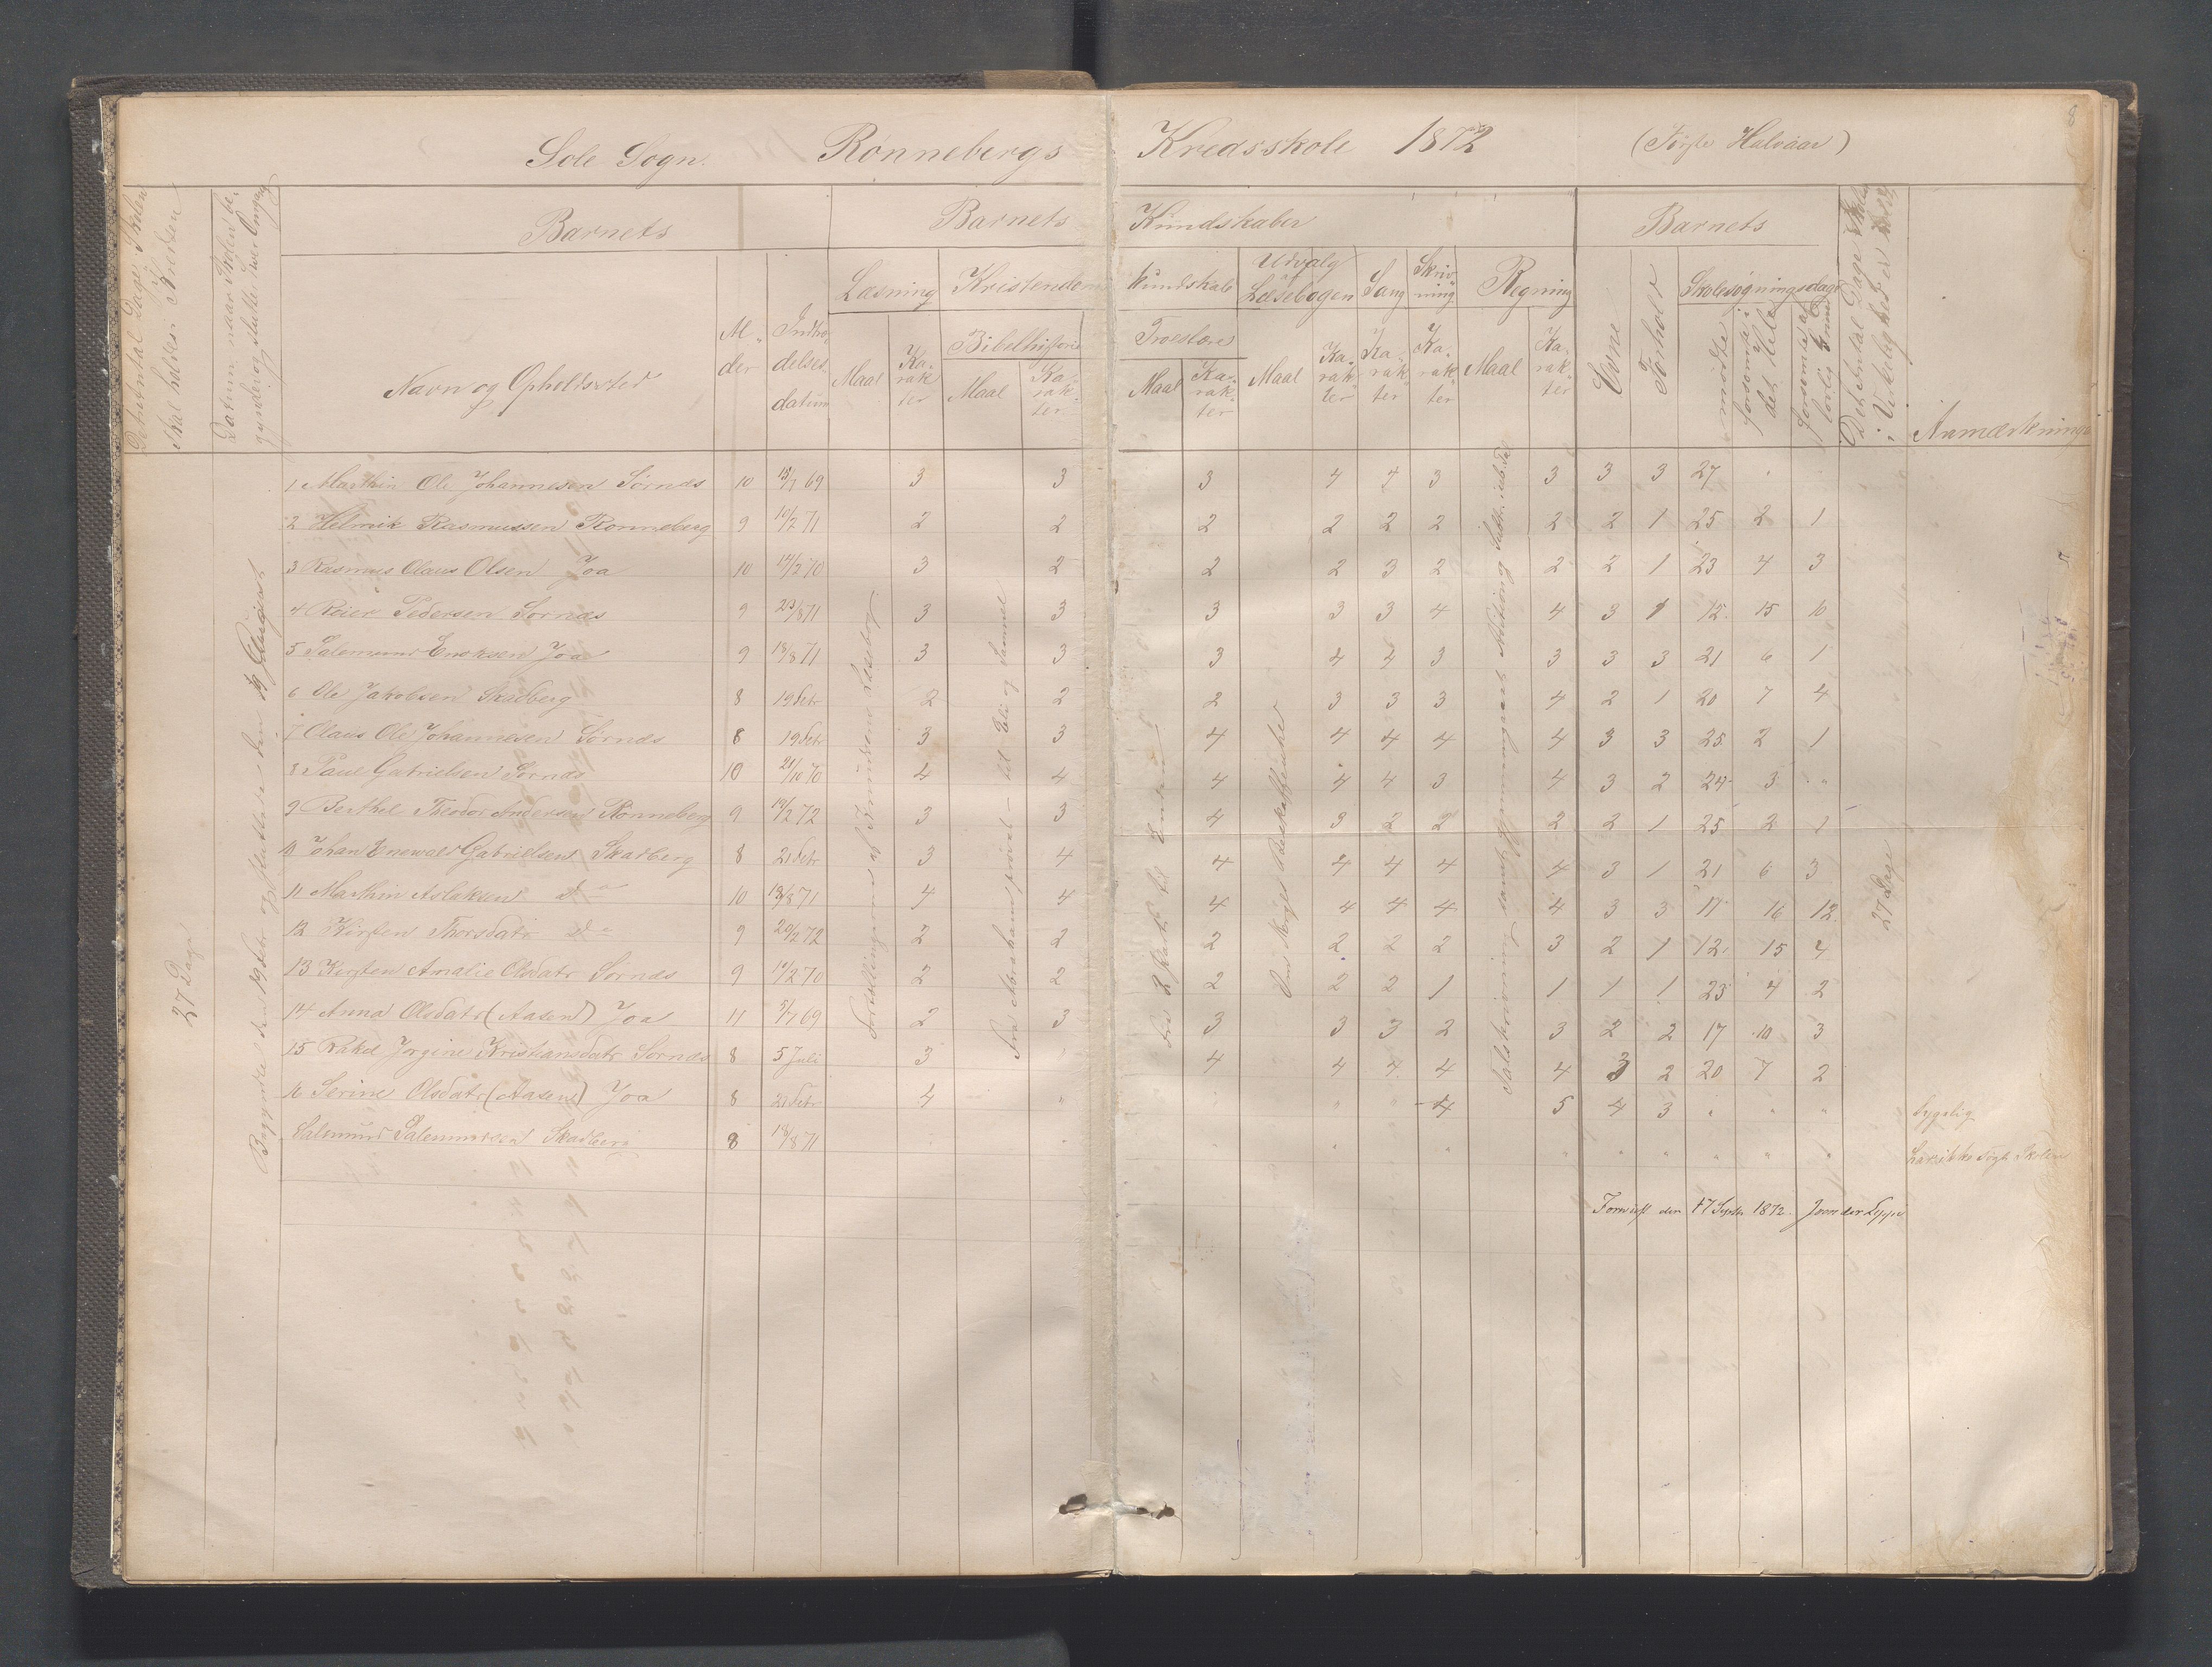 Sole Sogn. Rønnebergs Kredsskole 1872 (Første Halvaar)
8
Det Antal Dage Skolen skal holdes i Kredsen
Datum naar Skolen begynder og slutter hver Omgang
Barnets
Barnets Kundskaber
Barnets
Det Antal Dage Skolen i Virkelighed er
Navn og Opholdssted
Alder
Indtrædelses datum
Læsning
Kristendomskundskab
Udvalg af Læsebogen
Sang
Skrivning
Regning
Evne
Forhold
Skolesøgningsdage
Bibelhistorie
Troeslære
Maal
Karakter
Maal
Karakter
Maal
Karakter
Maal
Karakter
Karakter
Karakter
Maal
Karakter
mødte
forsømte i det Hele
forsømte af lovlig Grund
Anmærkninger
27 Dage
Begyndte den 19 Febr og sluttede den 19 August
Fortællingerne af Jensens Læsebog
Fra Abrahams prøvel– til Eli og Samuel
Fra 2 Part til Enden
Om Norges Beskaffenhed
27 Dage
1 Marthin Ole Johannesen Sørnæs 10 15/7 69 3 3 3 4 4 3 3 3 3 27 " "
2 Helmik Rasmussen Rønneberg 9 10/2 71 2 2 2 2 2 2 2 2 1 25 2 1
3 Rasmus Olaus Olsen Joa 10 14/2 70 3 2 2 2 3 2 2 2 1 23 4 3
4 Reier Pedersen Sørnæs 9 23/8 71 3 3 3 3 3 4 4 3 1 12 15 10
5 Salemund Enoksen Joa 9 18/8 71 3 3 3 4 4 3 3 3 3 21 6 1
6 Ole Jakobsen Skadberg 8 19 Febr 2 2 2 3 3 3 4 2 1 20 7 4
7 Olaus Ole Johannesen Sørnæs 8 19 Febr 3 3 4 4 4 4 4 3 3 25 2 1
8 Paul Gabrielsen Sørnæs 10 21/10 70 4 4 4 4 4 3 4 3 2 24 3 "
9 Berthel Theodor Andersen Rønneberg 9 19/2 72 3 3 4 3 2 2 2 2 1 25 2 1
10 Johan Enewald Gabrielsen Skadberg 8 21 Febr 3 4 4 4 4 4 4 3 1 21 6 3
11 Marthin Aslaksen do 10 18/8 71 4 4 4 4 4 4 4 3 3 11 16 12
12 Kirsten Thorsdatr do 9 20/2 72 2 2 2 2 2 2 3 2 1 12 15 4
13 Kirsten Amalie Olsdatr Sørnæs 9 14/2 70 2 2 2 2 2 1 1 1 1 23 4 2
14 Anna Olsdatr (Aasen) Joa 11 5/7 69 2 3 3 3 3 2 3 2 2 17 10 3
15 Rakel Jorgine Kristiansdatr Sørnæs 8 5 Juli 3 " 4 4 4 4 4 3 2 20 7 2
16 Serine Olsdatr (Aasen) Joa 8 21 Febr 4 " " " " 4 5 4 3 " " " Sygelig
Salemund Salemundsen Skadberg 8 18/8 71 " " " " " " " " " " " ikke søgt Skolen
Forevist den 17 Septbr 1872.